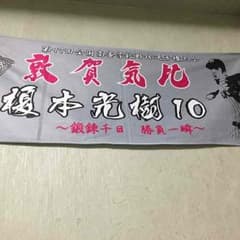 敦賀気比
榎本光樹10
～鍛錬千日 勝負一瞬～